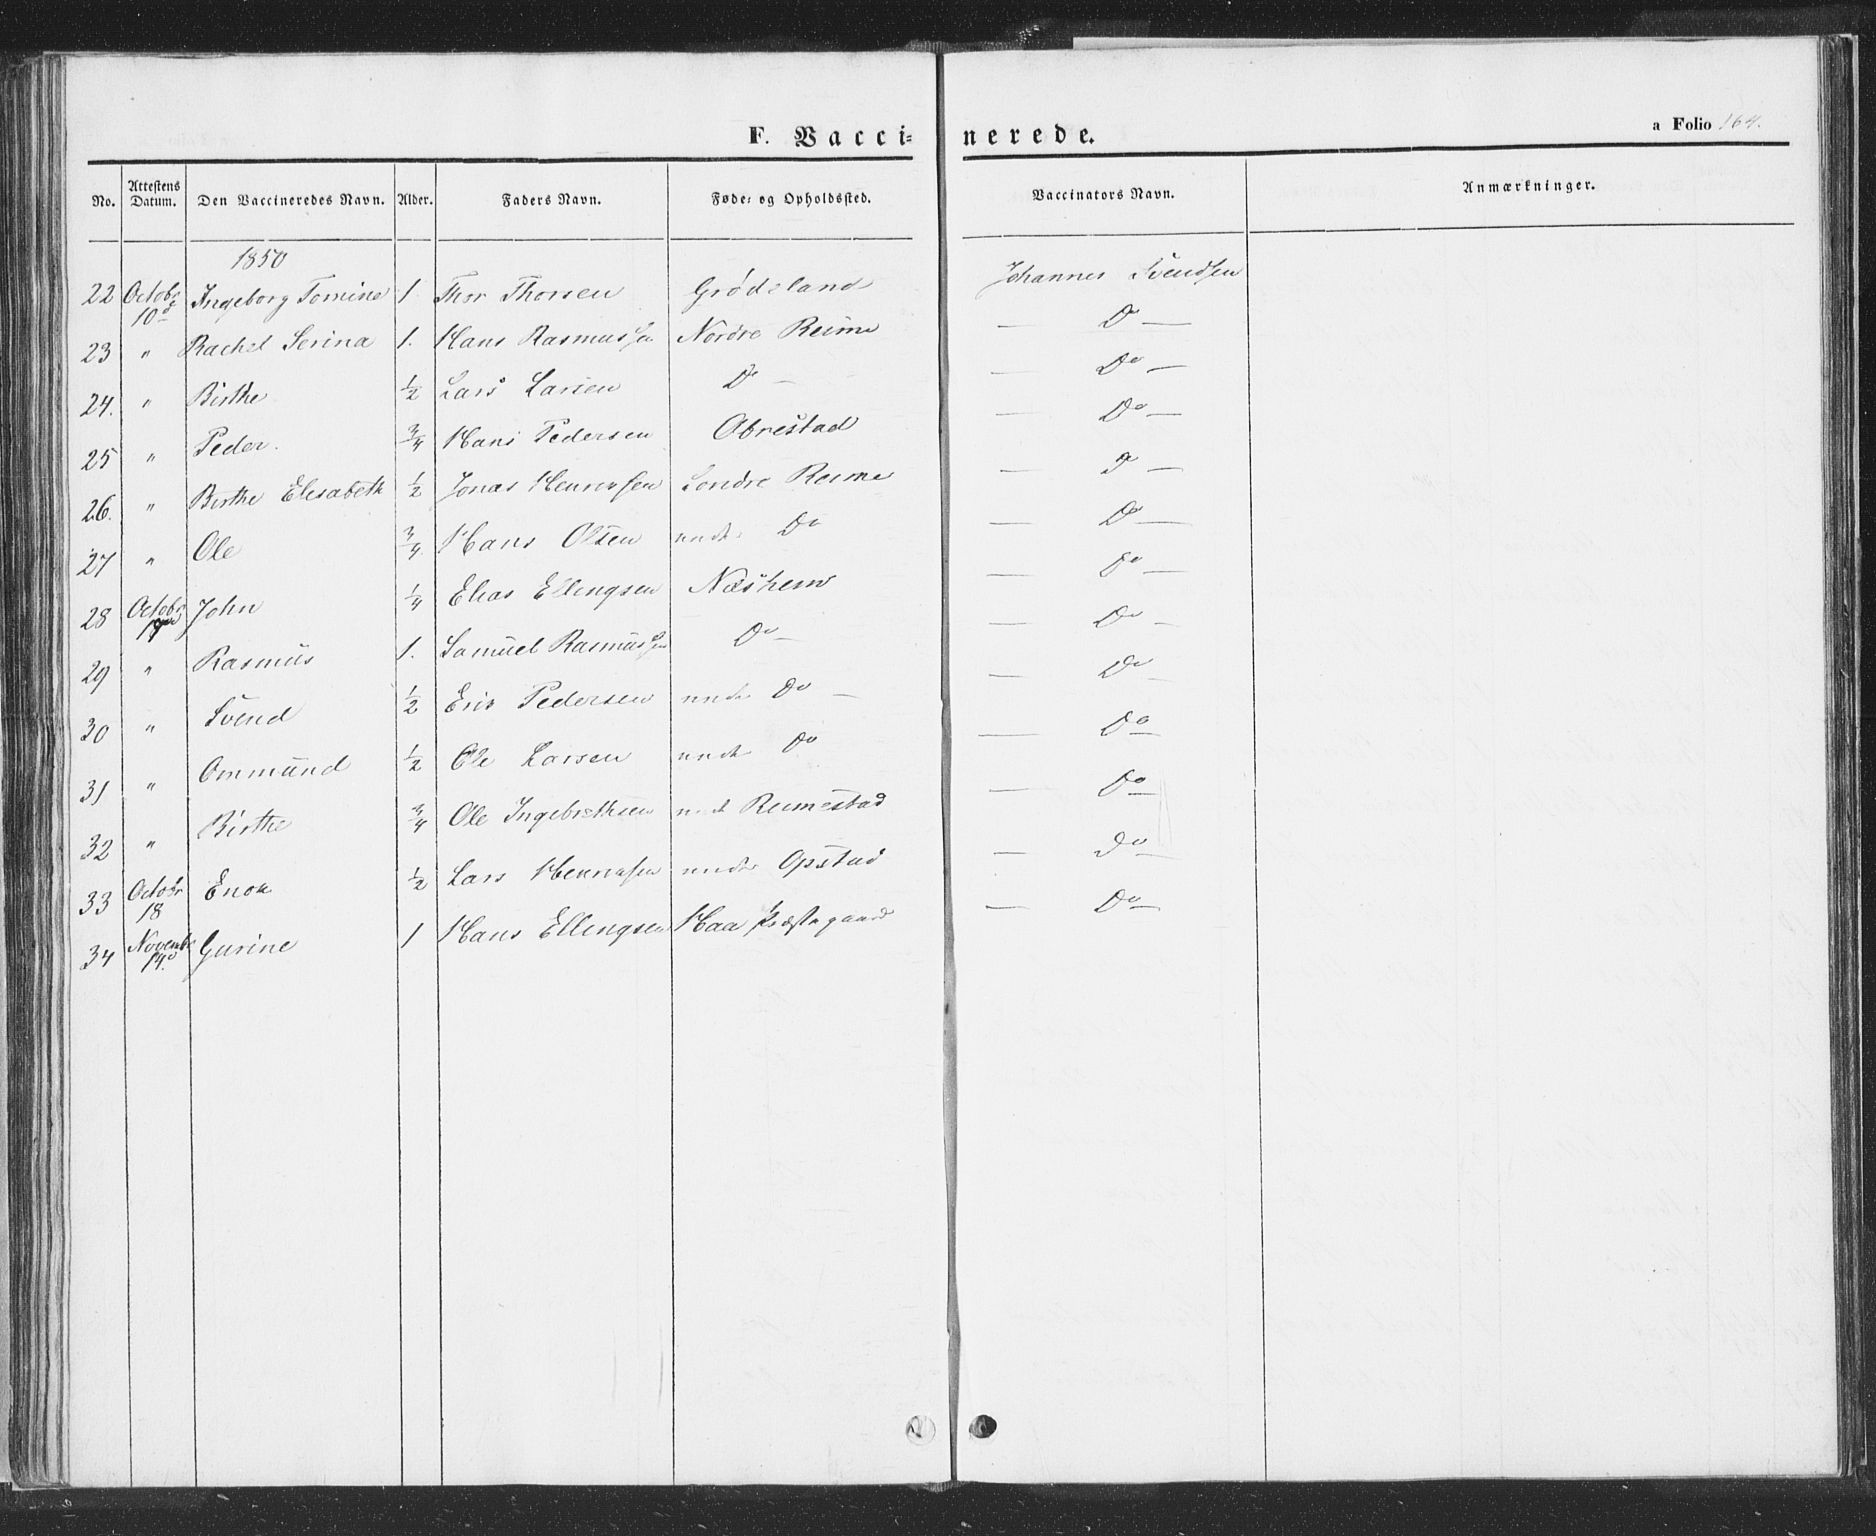 F. Vaccinerede.
a Folio 164.
No. Attestens Datum. Den Vaccineredes Navn. Alder. Faders Navn. Føde- og Opholdssted. Vaccinators Navn. Anmærkninger.
1850
22 Octobr 10 Ingeborg Tomine 1. Thor Thorsen Grødeland Johannes Svendsen
23 " Rachel Serina 1. Hans Rasmussen Nordre Reime — Do —
24. " Birthe 1/2 Lars Larsen Do — — Do —
25 " Peder. 3/4 Hans Pedersen Obrestad — Do —
26. " Birthe Elisabeth 1/2 Jonas Henriksen Søndre Reime — Do —
27 " Ole 3/4 Hans Olsen under Do — Do —
28 Octobr John 1/4 Elias Ellingsen Næshem — Do —
29 " Rasmus 1. Samuel Rasmussen Do — — Do —
30 " Svend 1/2 Eric Pedersen under Do — — Do
31 " Ommund 1/2 Ole Larsen under Do — Do
32 " Birthe 3/4 Ole Ingebrethsen under Reimestad — Do
33 Octobr 18 Enok 1/2 Lars Henriksen under Opstad — Do
34 Novembr 14 Gurine 1 Hans Ellingsen Haa Præstegaard — Do